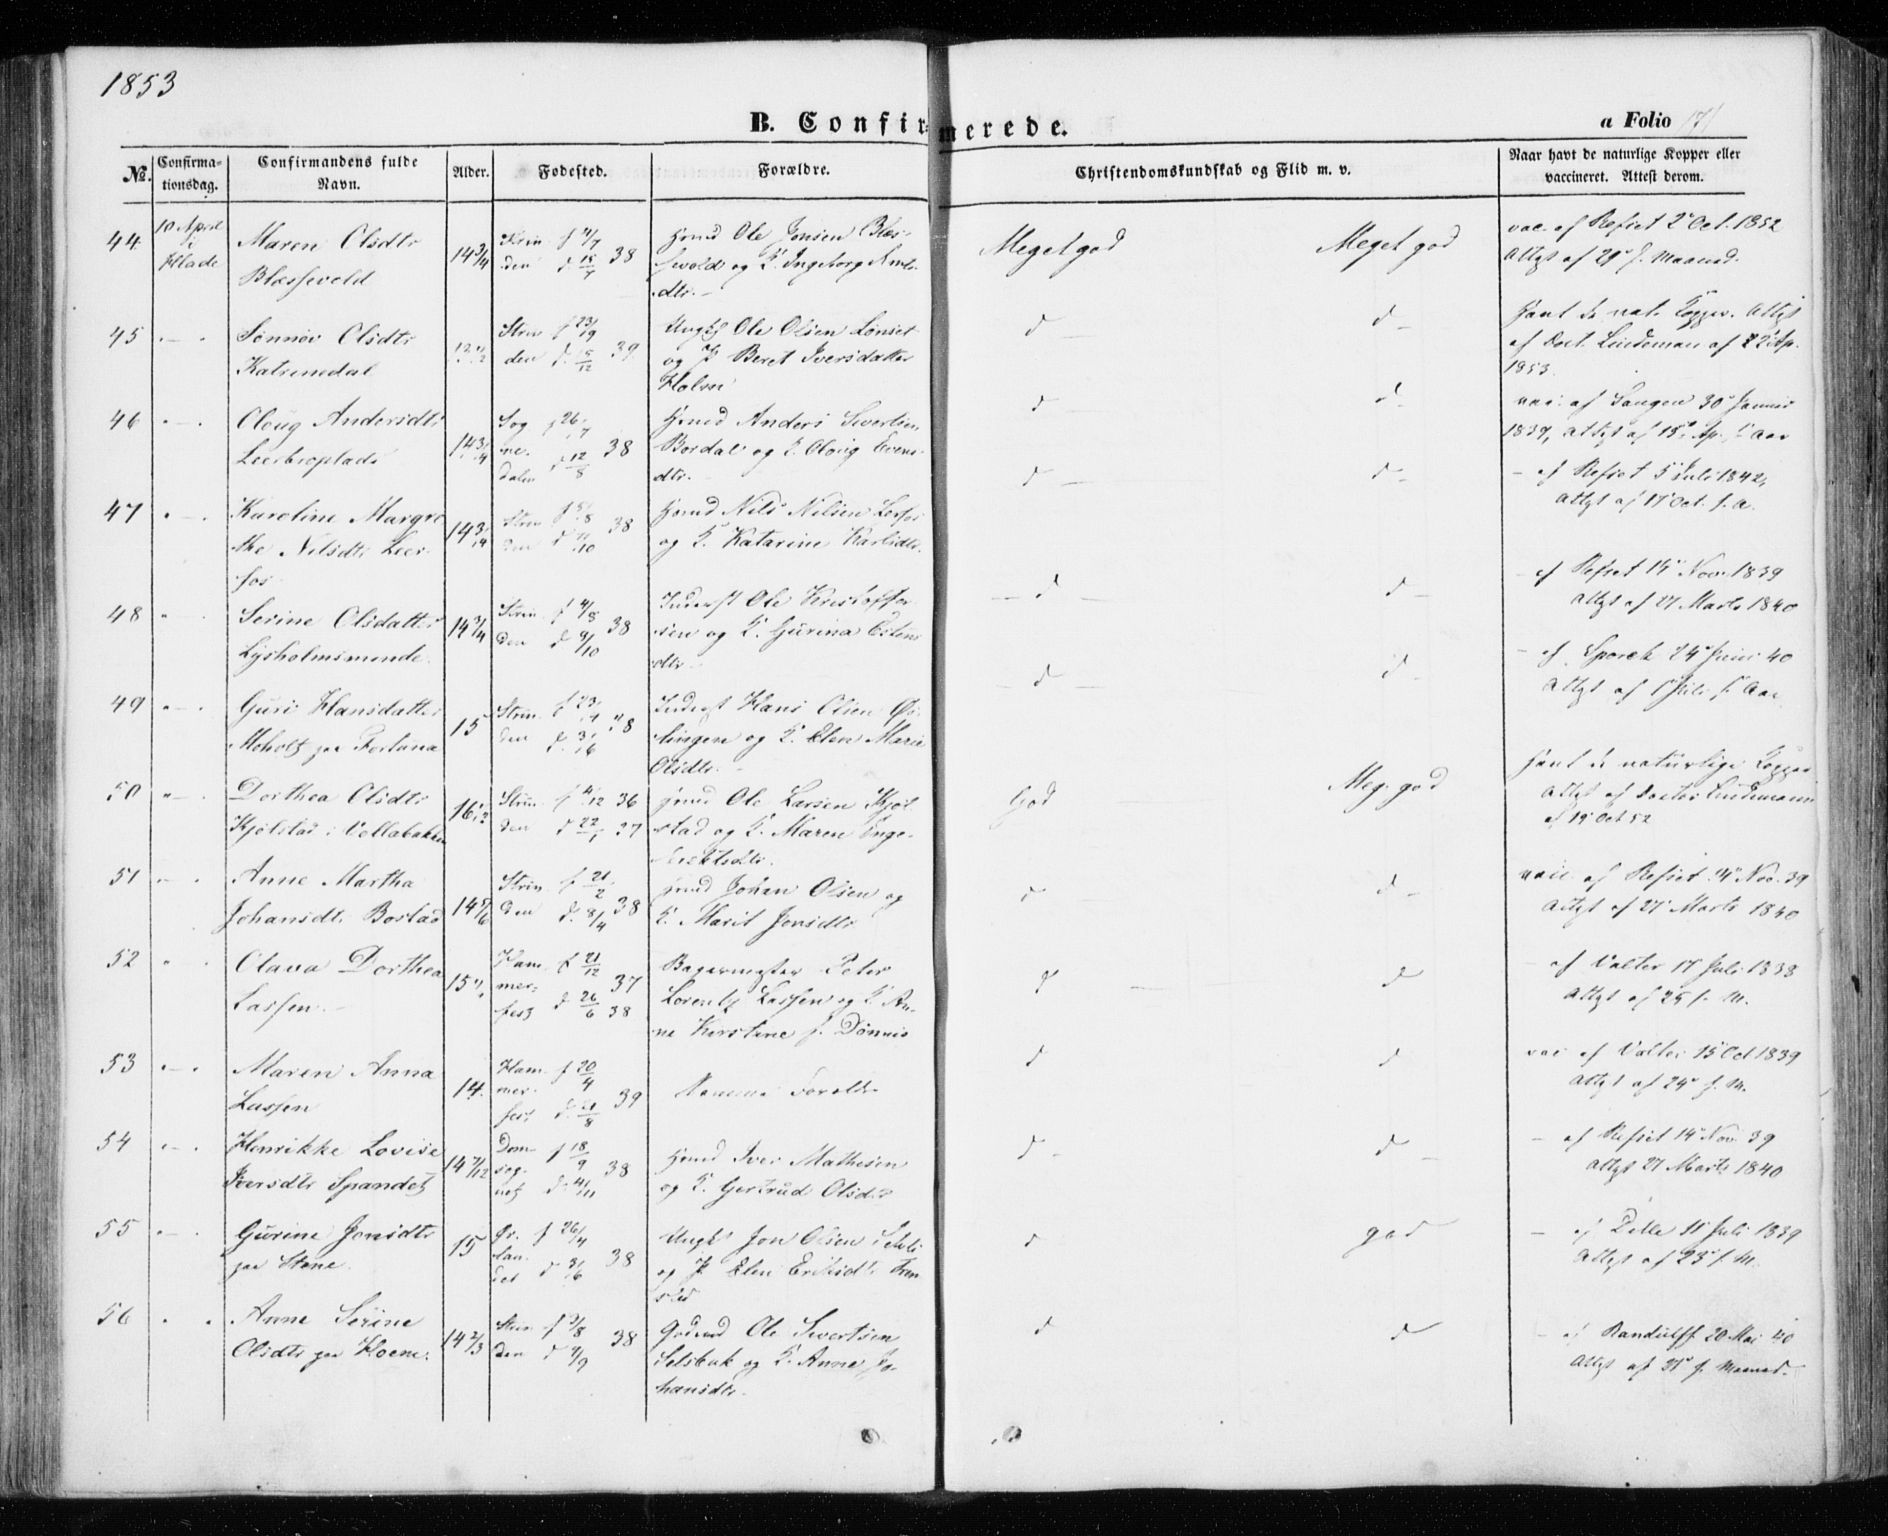 1853
B. Confirmerede.
a Folio 171
No.
Confirma-
tionsdag.
Confirmandens fulde
Navn.
Alder.
Fødested.
Forældre.
Christendomskundskab og Flid m. v.
Naar havt de naturlige Kopper eller
vaccineret. Attest derom.
44
10 April
i
Hlade
Maren Olsdtr
Blæssevold
14 3/4
Strin
den
f 4/7
d
38
Hmd Ole Jonsen Blæs-
sevold og K. Ingeborg
dtr.
Meget god
Meget god
vac. af Refset 2 Oct. 1852
Attest af 29 s. Maaned.
45
Sønnøv Olsdtr
Katrinedal
Strin
den
f 23/9
d. 15/12
39
Ungk Ole Olsen Lönset
og P. Beret Iversdatter
Holm
d
d
Havt de nat. Kopper. Attest
af Doct. Lindeman af 22 Ap.
1853
46
Oloug Andersdtr
Leerbroplads
14 3/4
Sog
ne.
dalen
f 26/7
d 12/8
38
Hmd Anders Sivertsen
Bordal og K. Oloug Evens
dtr.
d
d
vac. af Tangen 30 Januar
1839, attest af 15 Ap. s. Aar
47
Karoline Margre
the Nilsdtr Leer-
fos
14 3/4
Strin
den
f 5/8
d 11/10
38
Hmd Nils Nilsen Lerfos
og K. Katarine Karlsdtr.
d
d
- af Refset 5 Juli 1842,
attest af 17 Oct. s. a.
48
Serine Olsdatter
Lysholmsminde.
14 3/4
Strin
den
f 4/8
d 9/10
38
Inderst Ole Kristoffer
sen og K. Gurina Estens
dtr
d
d
- af Refset 14 Nov. 1839
attest af 27 Marts 1840
49
Guri Hansdatter
Moholt paa Fortuna
15
Strin
den
f 23/4
d. 3/6
38
Inderst Hans Olsen Øs-
lingen og K. Elen Marie
Olsdtr.
d
d
- af Sporck 24 Juni 40
attest af 1 Juli s. Aar
50
Dorthea Olsdtr
Kjølstad i Vollabakken
16
Strin
den
f 4/12 36
d 22/1 37
Hmd Ole Larsen Kjøl
stad og K. Maren Inge-
God
Meg. god
Havt de naturlige Kopper
attest af Doctor Lindemann
af 19 Oct 52
51
Anne Martha
Johansdtr Bostad
14 5/6
Strin
den
f 21/2
d. 8/4
38
Hmd Johan Olsen og
K. Marit Jonsdtr
d
d
vacc af Refset 14 Nov. 39
attest af 27 Marts 1840
52
Olava Dorthea
Lassen
15
Ham
mer-
fest
f 21/12 37
d 26/6 38
Bagermester Peter
Lorentz Lassen og K. An-
ne Kerstine f. Dønnis
d
d
- af Valter 17 Juli 1838
attest af 25 s. M.
53
Maren Anna
Lassen
14.
Ham
mer-
fest
f 20/4
d. 21/8
39
Samme Forældre
d
d
vac af Valter 15 Oct 1839
attest af 24 s. M.
54
Henrikke Lovise
Iversdtr Spandet
14 7/12
Dom-
sog-
net
f 18/9
d. 4/11
38
Hmd Iver Mathesen
og K. Gertrud Olsdtr
d
d
- af Refset 14 Nov. 39
attest 27 Marts 1840
55
Gurine Jonsdtr
paa Stene.
15
Ør.
lan-
det
f 26/4
d 3/6
38
Ungk Jon Olsen
og P. Elen Eriksdtr
d
god
- af Delle 11 Juli 1839
attest af 23 s. M.
56
Anne Serine
Olsdtr paa Hoem.
14 2/3
Strin
den
f 3/8
d 9/9
38
Gdmd Ole Sivertsen
Selsbak og K. Anne Jo-
hansdtr.
d
d
- af Randulff 20 Mai 40
attest af 31 s. Maaned.